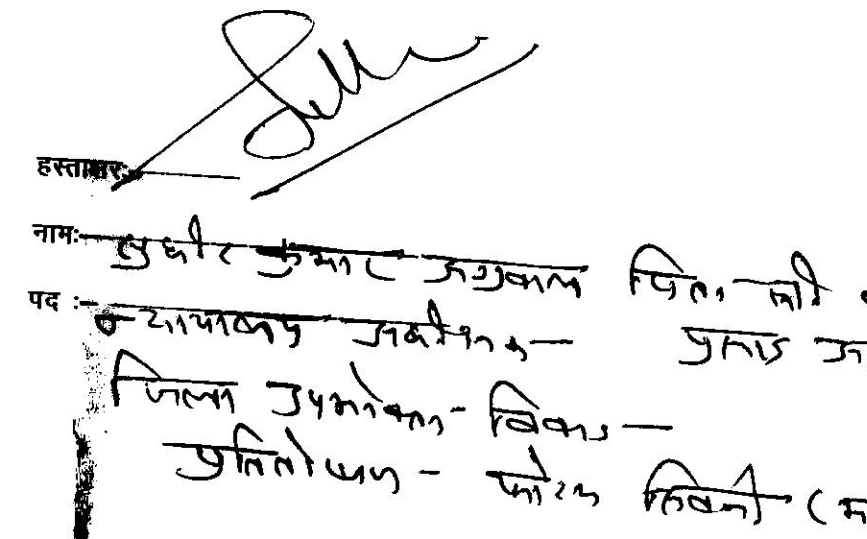 हस्ताक्षर:-
नाम:- सुधीर कुमार अग्रवाल पिता श्री
पद :- न्यायालय अधीक्षक - प्रसाद अ
जिला उपभोक्ता - विवाद -
प्रतितोषण - फोरम सिवनी (म